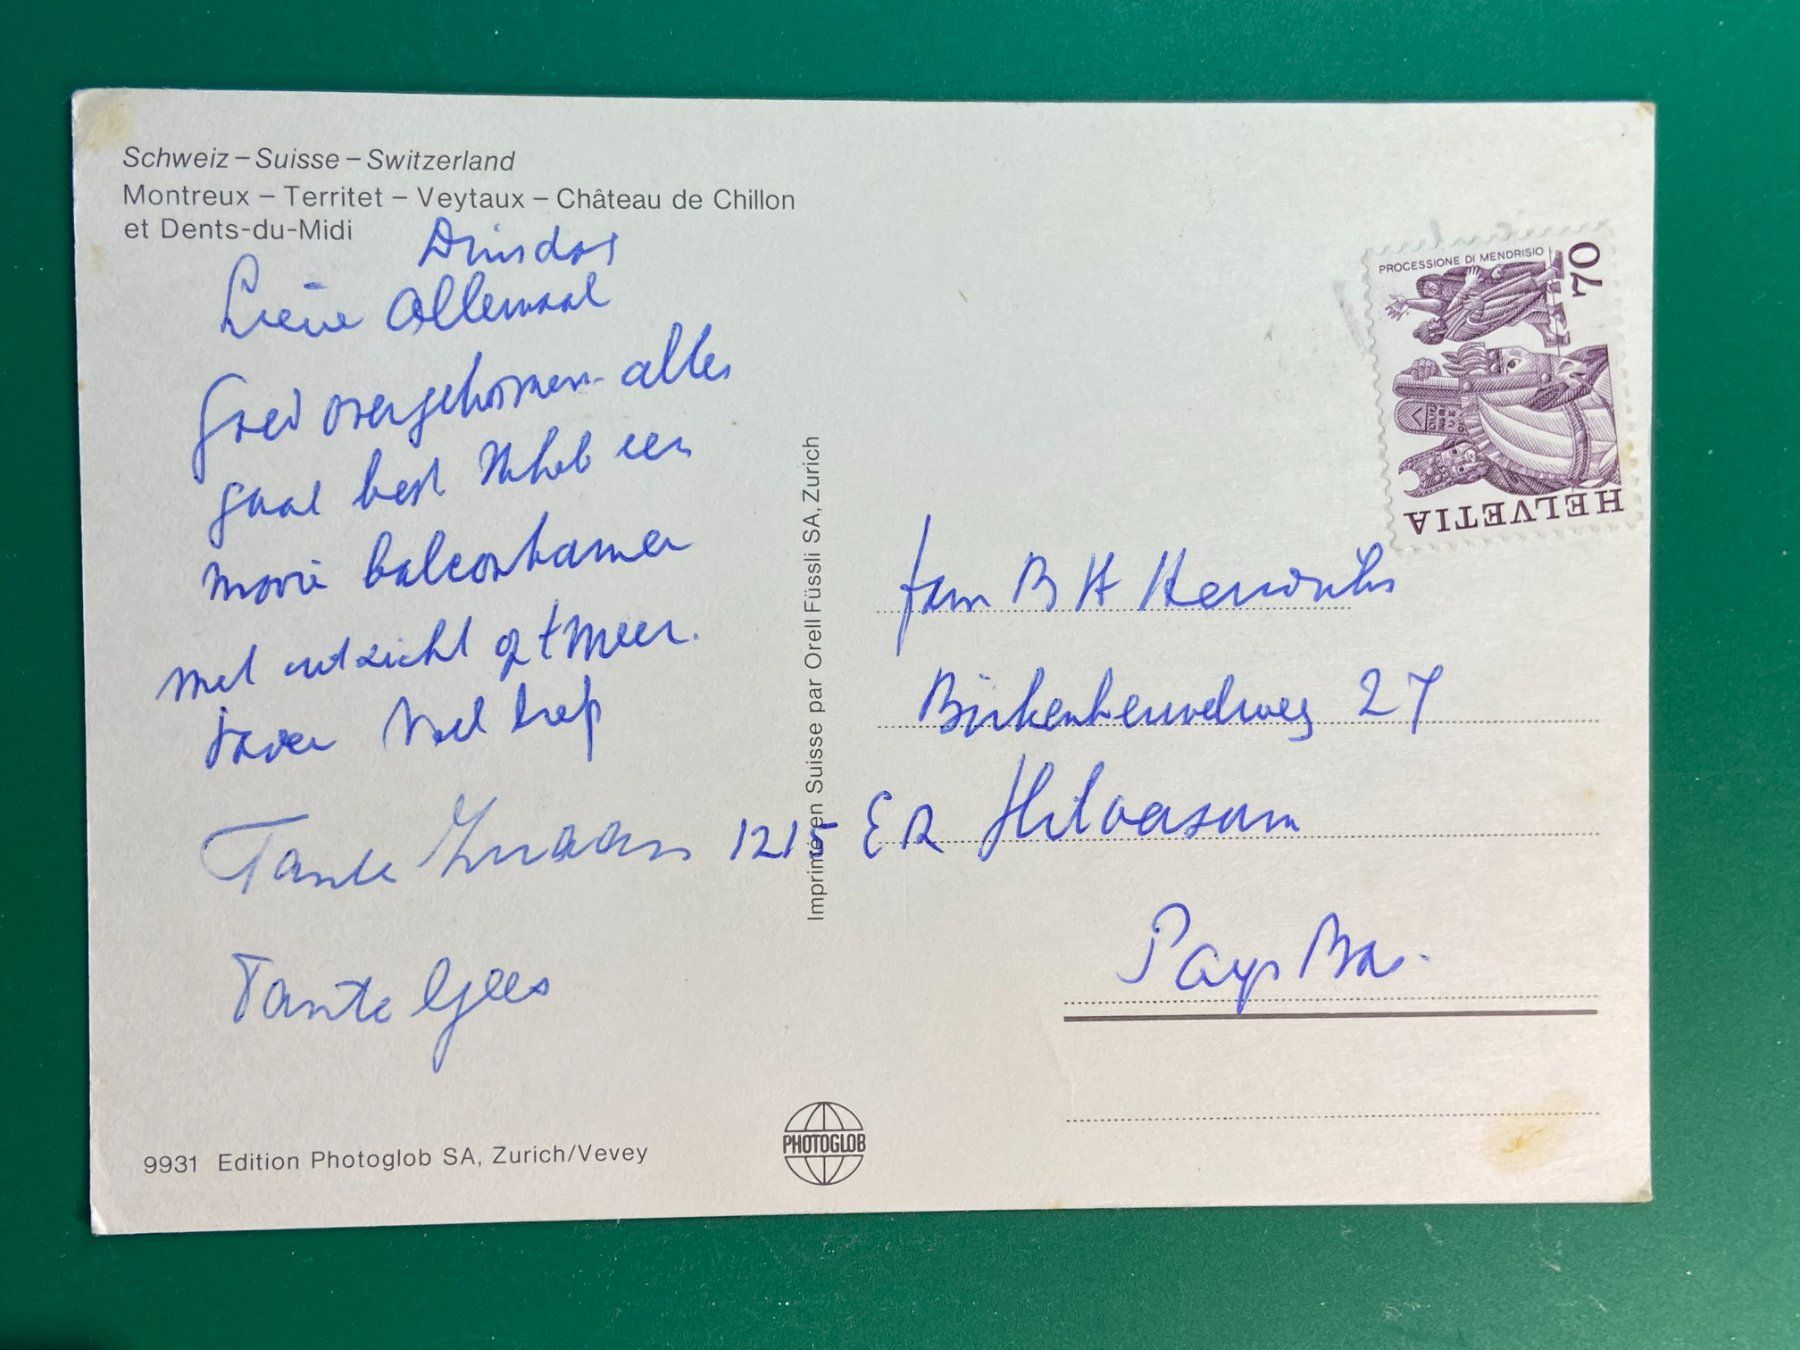 Schweiz – Suisse – Switzerland
Montreux – Territet – Veytaux – Château de Chillon
et Dents-du-Midi
Dinsdag
Lieve Allemaal
Goed overgekomen alles
gaat best Ik heb een
mooie balconkamer
met uitzicht op t Meer.
weer Veel liefs
Tante
Tante Gees
9931 Edition Photoglob SA, Zurich/Vevey
Imprimé en Suisse par Orell Füssli SA, Zurich
PHOTOGLOB
PROCESSIONE DI MENDRISIO
70
HELVETIA
fam B H Hendriks
Birkenheuvelweg 27
1215 ER Hilversum
Pays Bas.